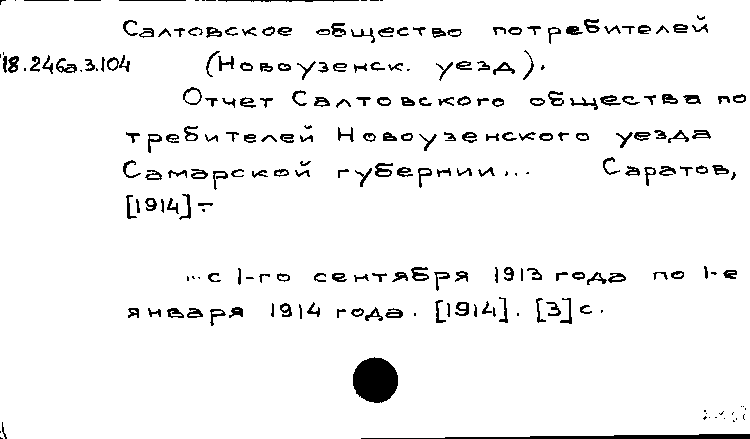 Салтовское общество потребителей
18.246а.3.104 (Новоузенск. уезд).
Отчет Салтовского общества по
требителей Новоузенского уезда
Самарской губернии... Саратов,
[1914]-
...с 1-го сентября 1913 года по 1-е
января 1914 года. [1914]. [3] с.